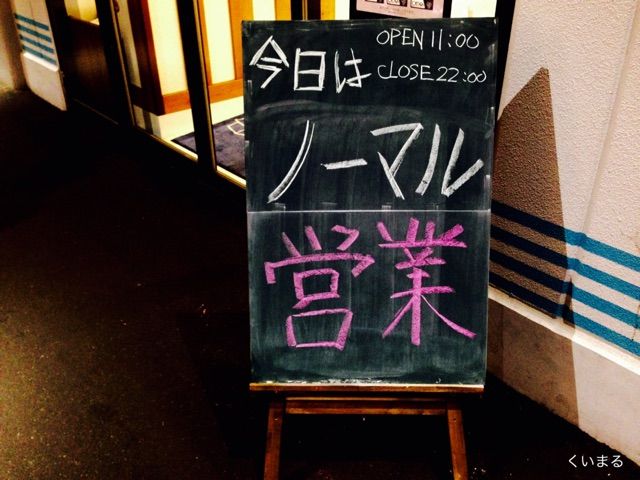 今日は
OPEN 11:00
CLOSE 22:00
ノーマル
営業
くいまる